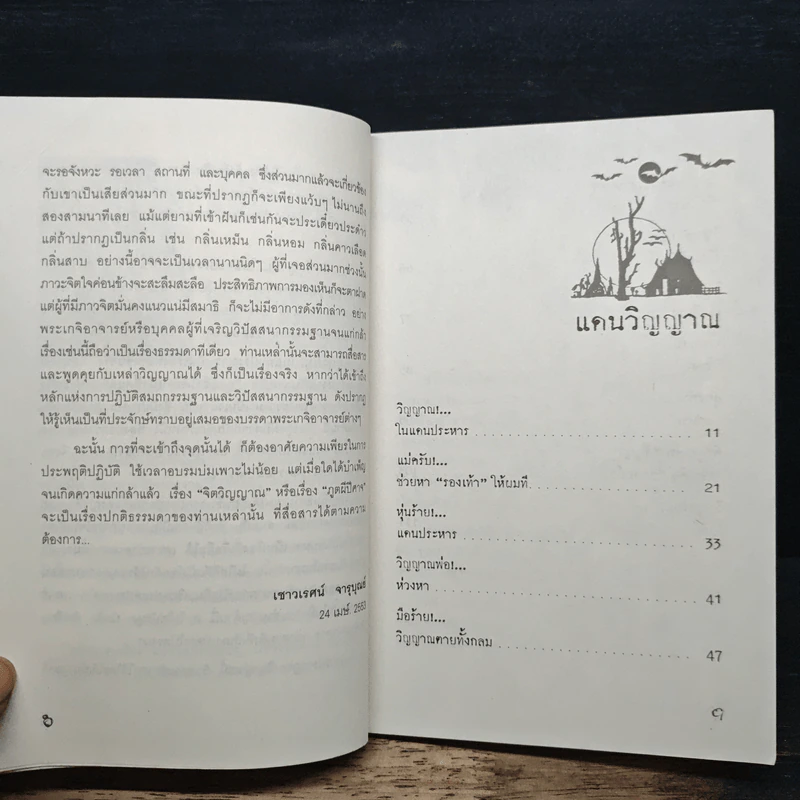 จะรอจังหวะ รอเวลา สถานที่ และบุคคล ซึ่งส่วนมากแล้วจะเกี่ยวข้อง
กับเขาเป็นเสียส่วนมาก ขณะที่ปรากฏก็จะเพียงแว้บๆ ไม่นานถึง
สองสามนาทีเลย แม้แต่ยามที่เข้าฝันก็เช่นกันจะประเดี๋ยวประด๋าว
แต่ถ้าปรากฏเป็นกลิ่น เช่น กลิ่นเหม็น กลิ่นหอม กลิ่นคาวเลือด
กลิ่นสาบ อย่างนี้อาจจะเป็นเวลานานนิดๆ ผู้ที่เจอส่วนมากช่วงนั้น
ภาวะจิตใจค่อนข้างจะสะลึมสะลือ ประสิทธิภาพการมองเห็นก็จะตาฝาด
แต่ผู้ที่มีภาวจิตมั่นคงแนวแน่มีสมาธิ ก็จะไม่มีอาการดังที่กล่าว อย่าง
พระเกจิอาจารย์หรือบุคคลผู้ที่เจริญวิปัสสนากรรมฐานจนแก่กล้า
เรื่องเช่นนี้ถือว่าเป็นเรื่องธรรมดาทีเดียว ท่านเหล่านั้นจะสามารถสื่อสาร
และพูดคุยกับเหล่าวิญญาณได้ ซึ่งก็เป็นเรื่องจริง หากว่าได้เข้าถึง
หลักแห่งการปฏิบัติสมถกรรมฐานและวิปัสสนากรรมฐาน ดังปรากฏ
ให้รู้เห็นเป็นที่ประจักษ์ทราบอยู่เสมอของบรรดาพระเกจิอาจารย์ต่างๆ
ฉะนั้น การที่จะเข้าถึงจุดนั้นได้ ก็ต้องอาศัยความเพียรในการ
ประพฤติปฏิบัติ ใช้เวลาอบรมบ่มเพาะไม่น้อย แต่เมื่อใดได้บำเพ็ญ
จนเกิดความแก่กล้าแล้ว เรื่อง “จิตวิญญาณ” หรือเรื่อง “ภูตผีปีศาจ”
จะเป็นเรื่องปกติธรรมดาของท่านเหล่านั้น ที่สื่อสารได้ตามความ
ต้องการ...
เชาวเรศน์ จารุบุณย์
24 เมษ. 2553
๘
แดนวิญญาณ
วิญญาณ!...
ในแดนประหาร 11
แม่ครับ!...
ช่วยหา “รองเท้า” ให้ผมที 21
หุ่นร้าย!...
แดนประหาร 33
วิญญาณพ่อ!...
ห่วงหา 41
มือร้าย!...
วิญญาณตายทั้งกลม 47
๙